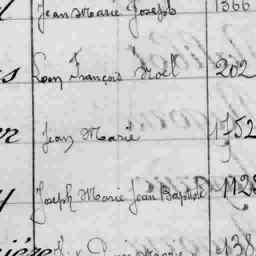 Jean Marie Joseph 1366
Léon François Noël 202
Jean Marie 1752
Joseph Marie Jean Baptiste 1128
138